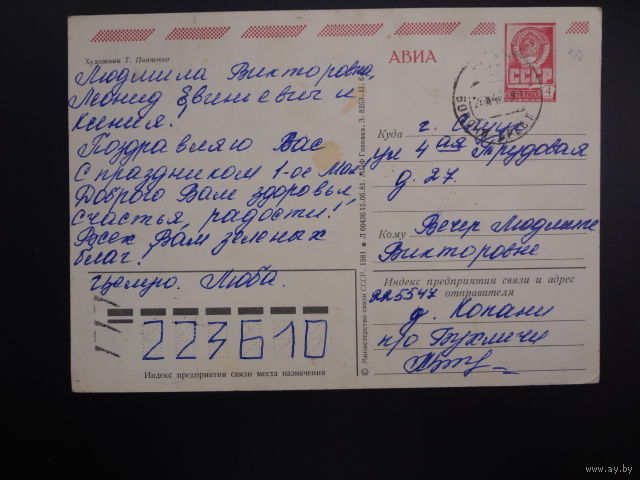 Художник Т. Панченко
Людмила Викторовна,
Леонид Евгеньевич и
Ксения!
Поздравляю Вас
С праздником 1-ое Мая.
Доброго Вам здоровья,
счастья, радости!
Всех Вам земных
благ!
Целую. Люба.
223610
Индекс предприятия связи места назначения
© Министерство связи СССР. 1981
АВИА
СССР
4
Куда
ул 4 ая Трудовая
д. 27.
Кому Вечер Людмиле
Викторовне
Индекс предприятия связи и адрес
отправителя
225547
д. Копани
п/о Бухличи
www.ay.by